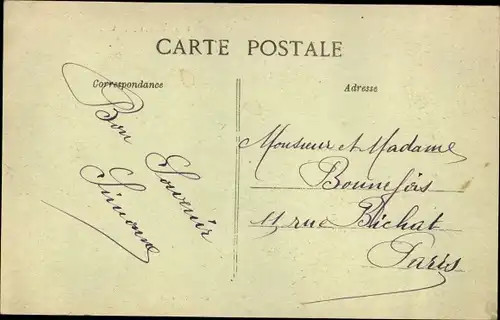 CARTE POSTALE
Correspondance
Adresse
Bon
Souvenir
Simonne
Monsieur et Madame
Bonnefois
11 rue Bichat
Paris